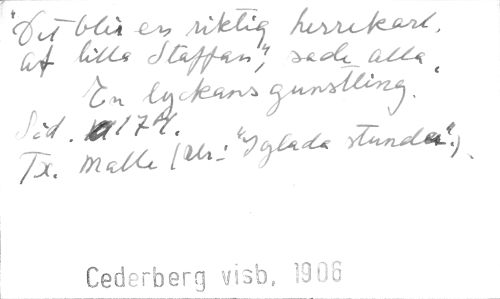 "Det blir en riktig herrekarl,
af lilla Staffan", sade alla.
En lyckans gunstling.
Sid. 174.
Tx. Malle (Ur: "I glada stunder".).
Cederberg visb, 1906